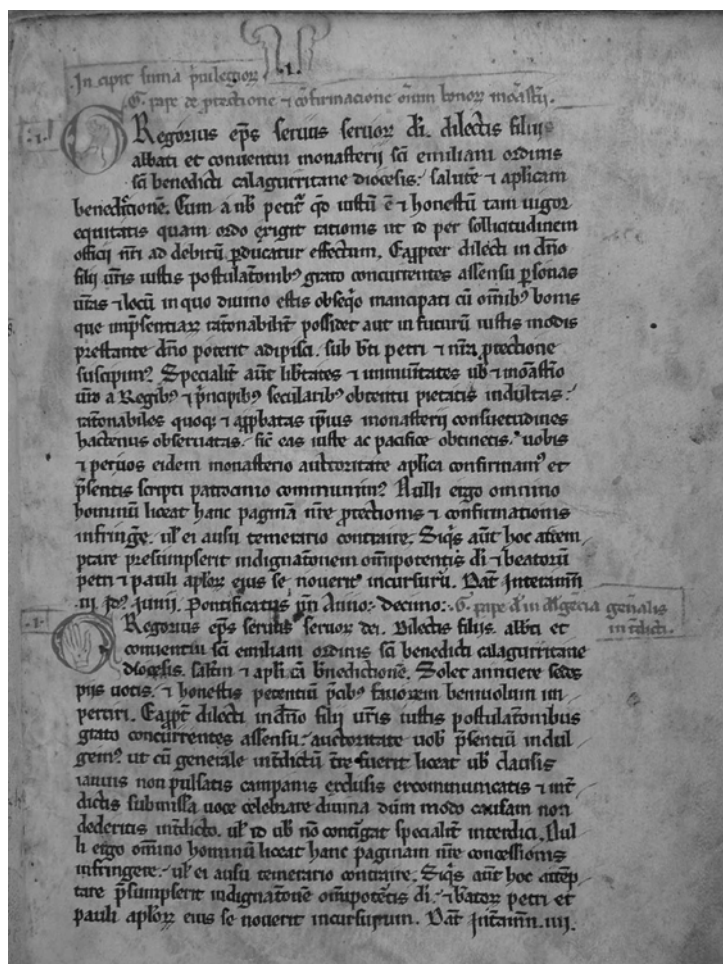 .In cipit suma p̃uilegiorꝝ .I.
.G. pape de ꝓtectione ⁊ ꝯfirmacione om̃ium bonorꝝ mo̅ast̃ij.
.I.
GRegorius ep̅s seruus seruorꝝ di̅. dilectis filijs
abbati et conuentui monasterij sc̅i emiliani ordinis
sc̅i benedicti calagurritane diocesis⁏ salute̅ ⁊ ap̅licam
benedictione̅. Cum a nob̅ petit̃ qd̅ iustu̅ e̅ ⁊ honestu̅ tam uigor
equitatis quam ordo exigit rationis ut id per sollicitudinem
officij nr̅i ad debitu̅ ꝑducatur effectum. Eaꝓpter dilecti in dn̅o
filij ur̅is iustis postulat̅onibꝰ grato concurrentes assensu ꝑsonas
ur̅as ⁊ locu̅ in quo diuino estis obseq̅o mancipati cu̅ om̅ibꝰ bonis
que imp̅sentiarꝝ rat̅onabilit̃ possidet aut in futuru̅ iustis modis
prestante dn̅o poterit adipisci. sub bt̅i petri ⁊ nr̅a ꝓtectione
suscipimꝰ Specialit̃ aut̅ lib̃tates ⁊ immu̅itates uob̅ ⁊ mo̅ast̃io
ur̅o a Regibꝰ ⁊ p̃ncipibꝰ secularibꝰ obtentu pietatis indultas⁏
rat̅onabiles quoqꝫ ⁊ aꝓbatas ip̅ius monasterij consuetudines
hactenus obseruatas. sic̅ eas iuste ac pacifice obtinetis. uobis
⁊ per uos eidem monasterio auctoritate ap̅lica confirmamꝰ et
p̅sentis scripti patrocinio communimꝰ Nulli ergo omnino
hominu̅ liceat hanc pagina̅ nr̅e ꝓtectionis ⁊ confirmationis
infring̃e. ul̅ ei ausu temerario contraire. Siq̅s aut̅ hoc attem
ptare presumpserit indignat̅onem om̅ipotentis di̅ ⁊ beatoru̅
petri ⁊ pauli ap̅lorꝝ ejus se nouerit incursuru̅. Dat̅ Interamn̅
.iij jdꝰ junij. Pontificatus nr̅i Anno⁏ Decimo⁏ .G. pape
.I.
GRegorius ep̅s seruus seruorꝝ dei. Dilectis filijs. abb̅ti et
conuentui sc̅i emiliani ordinis sc̅i benedicti calagurritane
diocesis. salt̅m ⁊ apl̅icã bn̅edictione̅. Solet annuere sedes
pijs uotis. ⁊ honestis petentiu̅ p̃cibꝰ fauorem beniuolum im
pertiri. Eaꝓpt̃ dilecti in dn̅o filij ur̅is iustis postulat̅onibus
grato concurrentes assensu⁏ auctoritate uob̅ p̅sentiu̅ indul
gemꝰ ut cu̅ generale int̃dictu̅ t̃re fuerit liceat uob̅ clausis
ianuis non pulsatis campanis exclusis excommunicatis ⁊ int̃
dictis submissa uoce celebrare diuina du̅m modo causam non
dederitis int̃dicto. ul̅ id uob̅ no̅ contigat specialit̃ interdici. Nul
li ergo om̅ino hominu̅ liceat hanc paginam nr̅e concessionis
infringere⁏ ul̅ ei ausu temerario contraire. Siq̅s aut̅ hoc atte̅p
tare p̅sumpserit indignat̅one̅ om̅ipote̅tis di̅⁏ ⁊ b̅atorꝝ petri et
pauli ap̅lorꝝ eius se nouerit incursurum. Dat̅ Int̃amn̅. iiij.